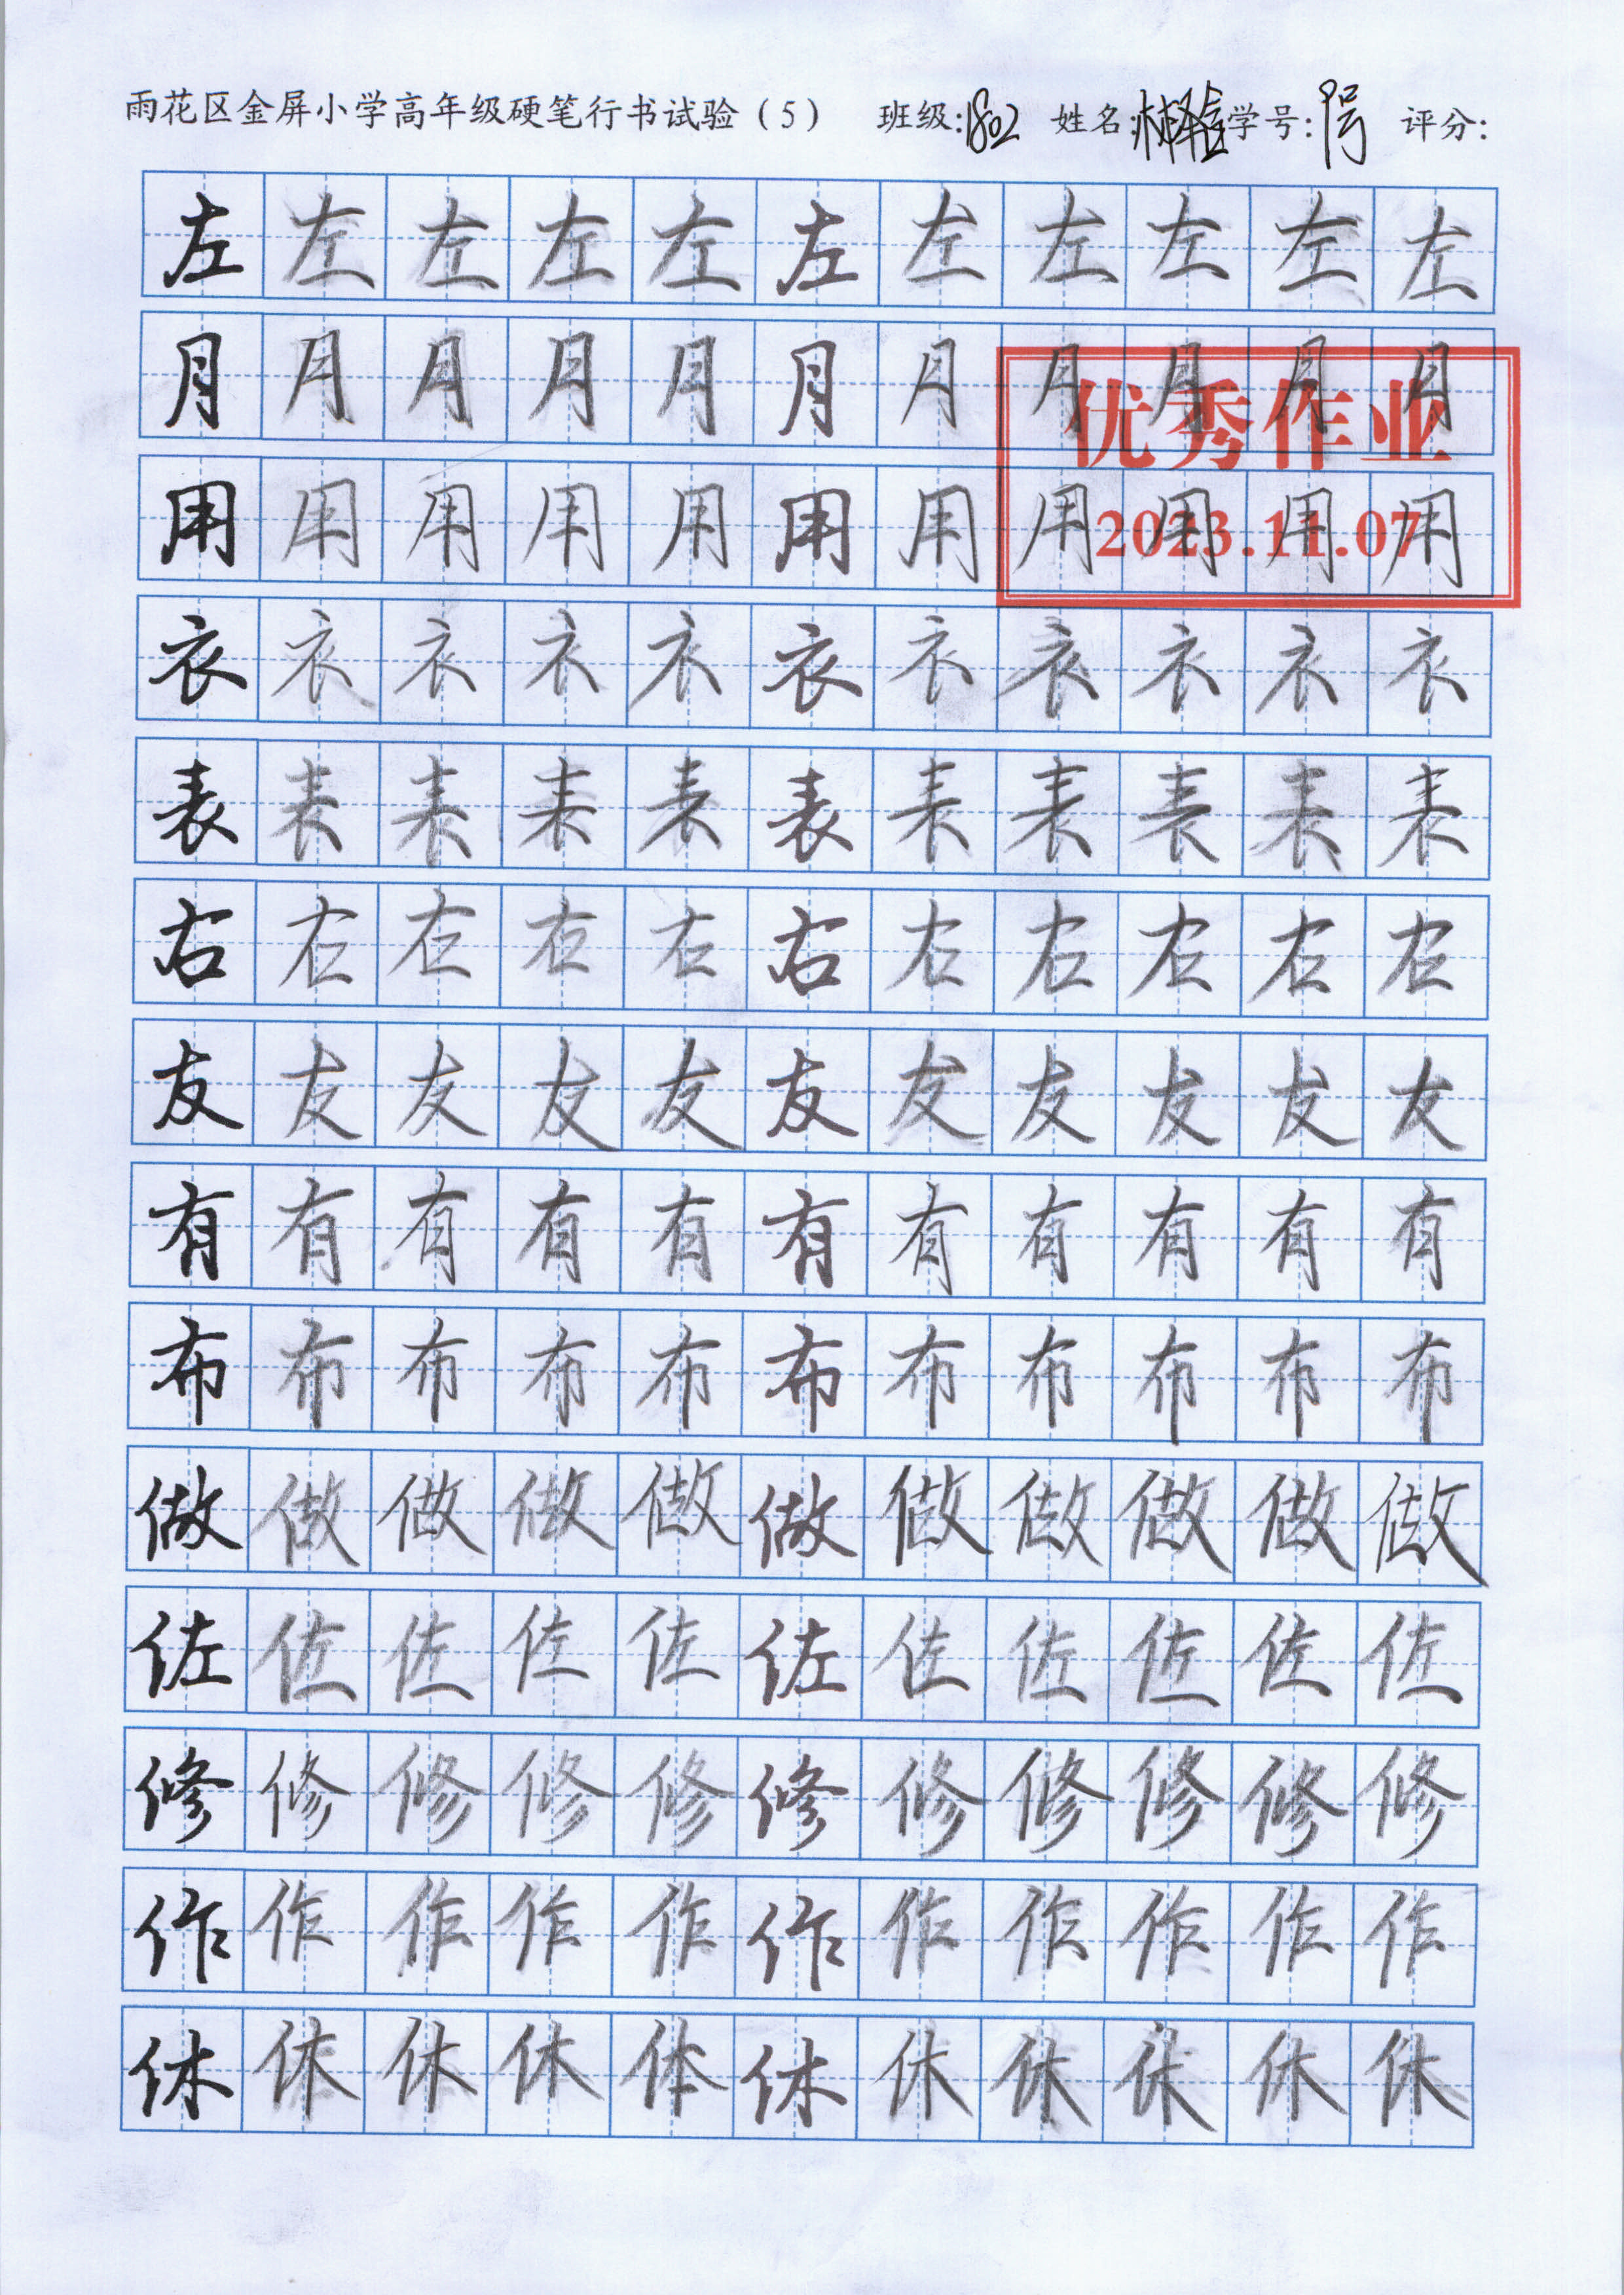 雨花区金屏小学高年级硬笔行书试验（5） 班级:1802 姓名: 学号:1号 评分:
左左左左左左左左左左左
月月月月月月月月月月月
优秀作业
用用用用用用用用用用用
2023.11.07
衣衣衣衣衣衣衣衣衣衣衣
表表表表表表表表表表表
右右右右右右右右右右右
友友友友友友友友友友友
有有有有有有有有有有有
布布布布布布布布布布布
做做做做做做做做做做做
佐佐佐佐佐佐佐佐佐佐佐
修修修修修修修修修修修
作作作作作作作作作作作
休休休休休休休休休休休